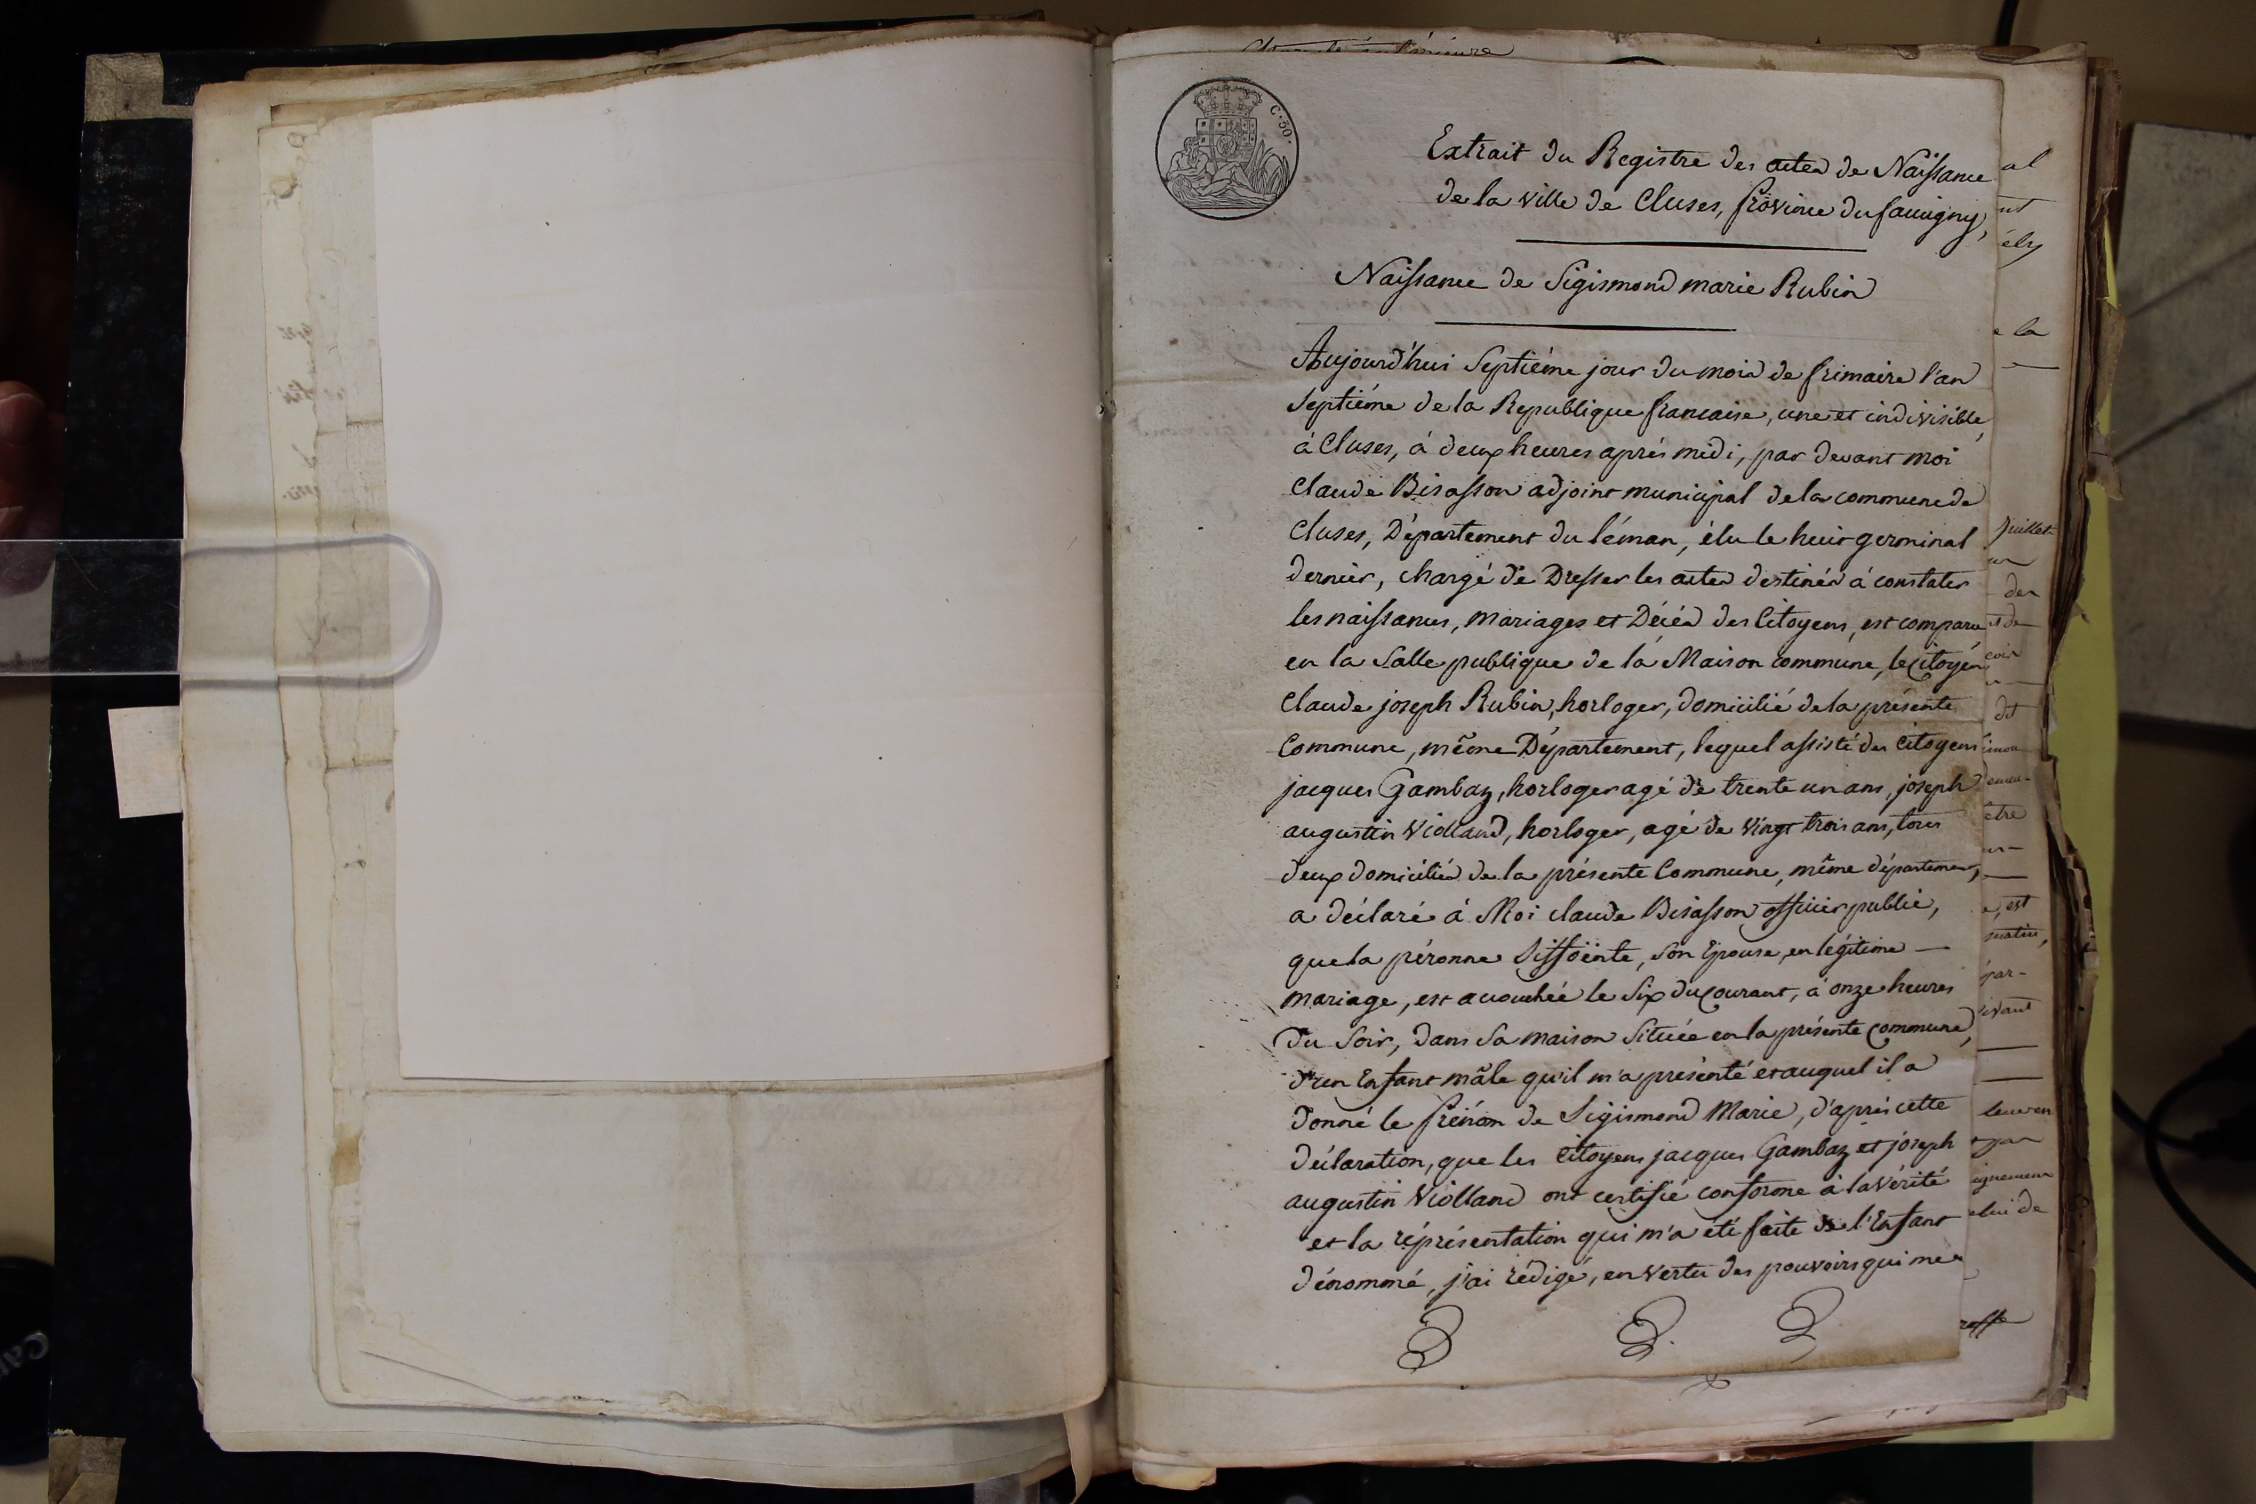 C. 50.
Extrait du Registre des actes de Naissance
de la ville de Cluses, province du faucigny,
Naissance de Sigismond marie Rubin
Aujourd'hui Septiéme jour du mois de frimaire l'an
Septiéme de la République francaise, une et indivisible,
à Cluses, à deux heures aprés midi, par devant moi
Claude Bisasson adjoint municipal de la commune de
Cluses, Département du léman, élu le huit germinal
dernier, chargé de Dresser les actes destinés à constater
les naissances, mariages et Décés des Citoyens, est comparu
en la Salle publique de la Maison commune, le Citoyen
Claude joseph Rubin, horloger, domicilié de la présente
Commune, même Département, lequel assisté des Citoyens
jacques Gambaz, horloger agé de trente un ans, joseph
augustin Violland, horloger, agé de vingt trois ans, tous
deux domiciliés de la présente Commune, même département,
a déclaré à Moi claude Bisasson officier public,
que la péronne Siffointe, son Epouse, en légitime —
mariage, est accouchée le Six du courant, à onze heures
du Soir, dans sa maison Située en la présente commune,
d'un Enfant mâle qu'il m'a présenté et auquel il a
donné le prénom de Sigismond Marie, d'aprés cette
déclaration, que les Citoyens jacques Gambaz et joseph
augustin Violland ont certifié conforme à la vérité
et la réprésentation qui m'a été faite de l'Enfant
dénommé, j'ai rédigé, en vertu des pouvoirs qui me
al
nt
e la
juillet
des
et de
dit
être
e, est
matin,
par-